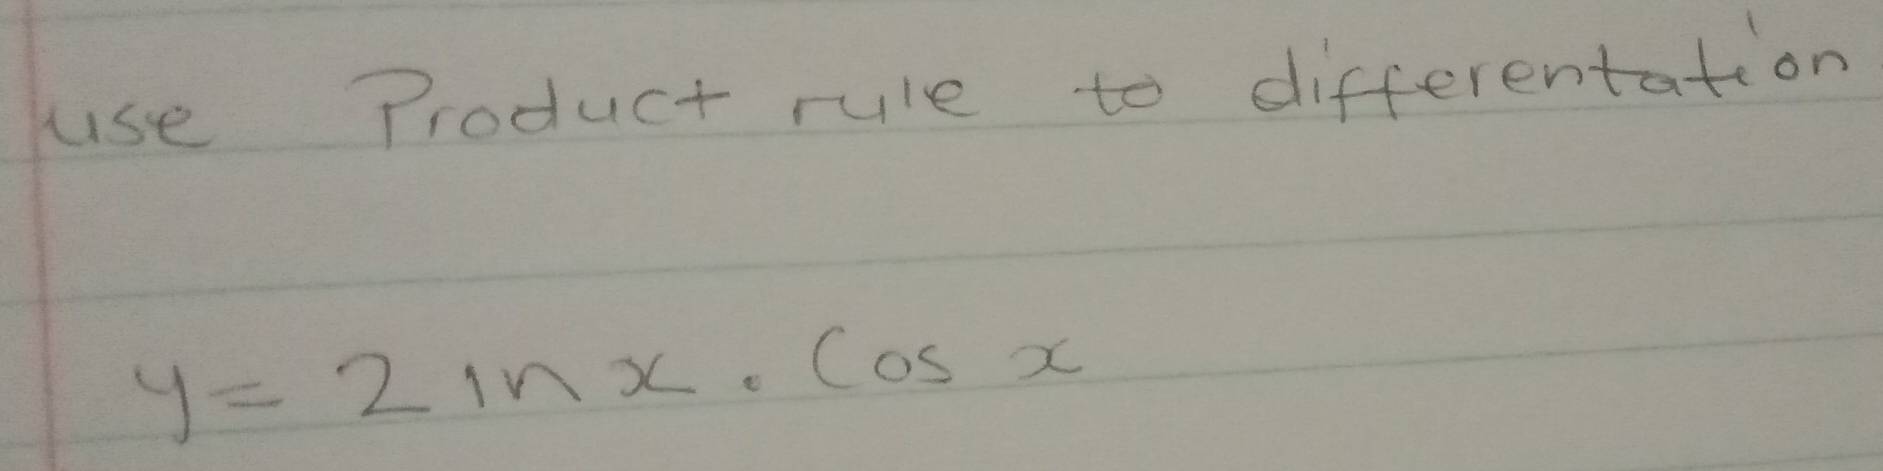 use Product rule to differentation
y = 2 ln x . Cos x